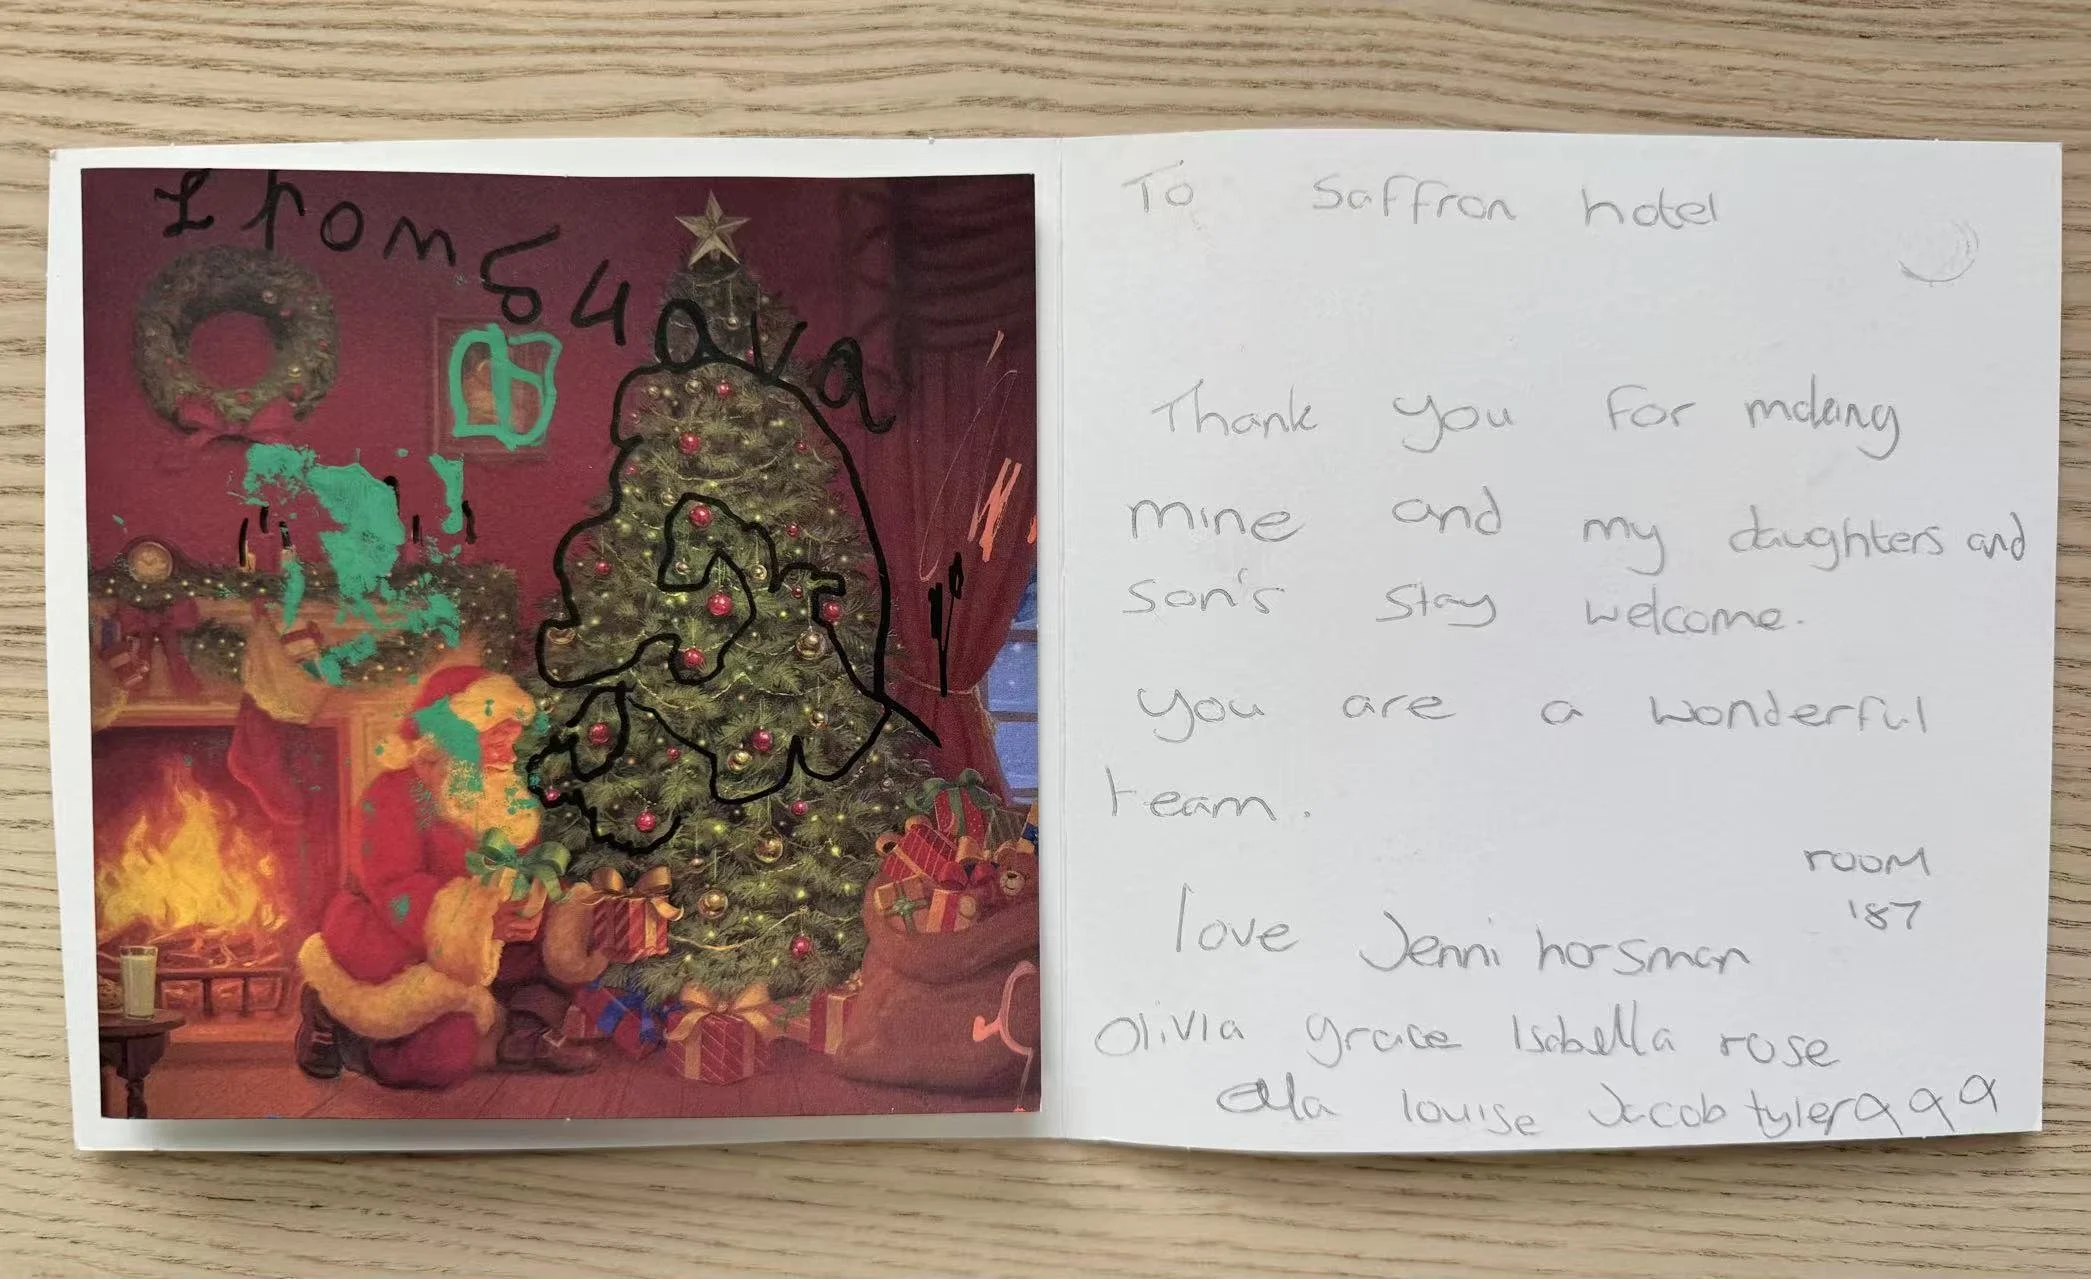 From
To Saffron hotel
Thank you for making
mine and my daughters and
son's stay welcome.
you are a wonderful
team.
room
187
love Jenni horsman
Olivia grace Isabella rose
ella louise Jacob tyler